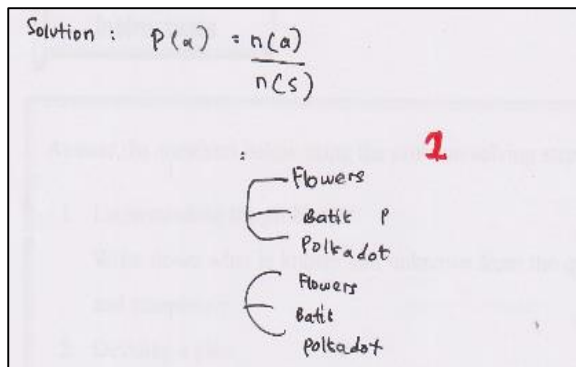 Solution : P(a) = n(a)
n(s)
=
1
Flowers
Batik P
Polkadot
Flowers
Batik
polkadot